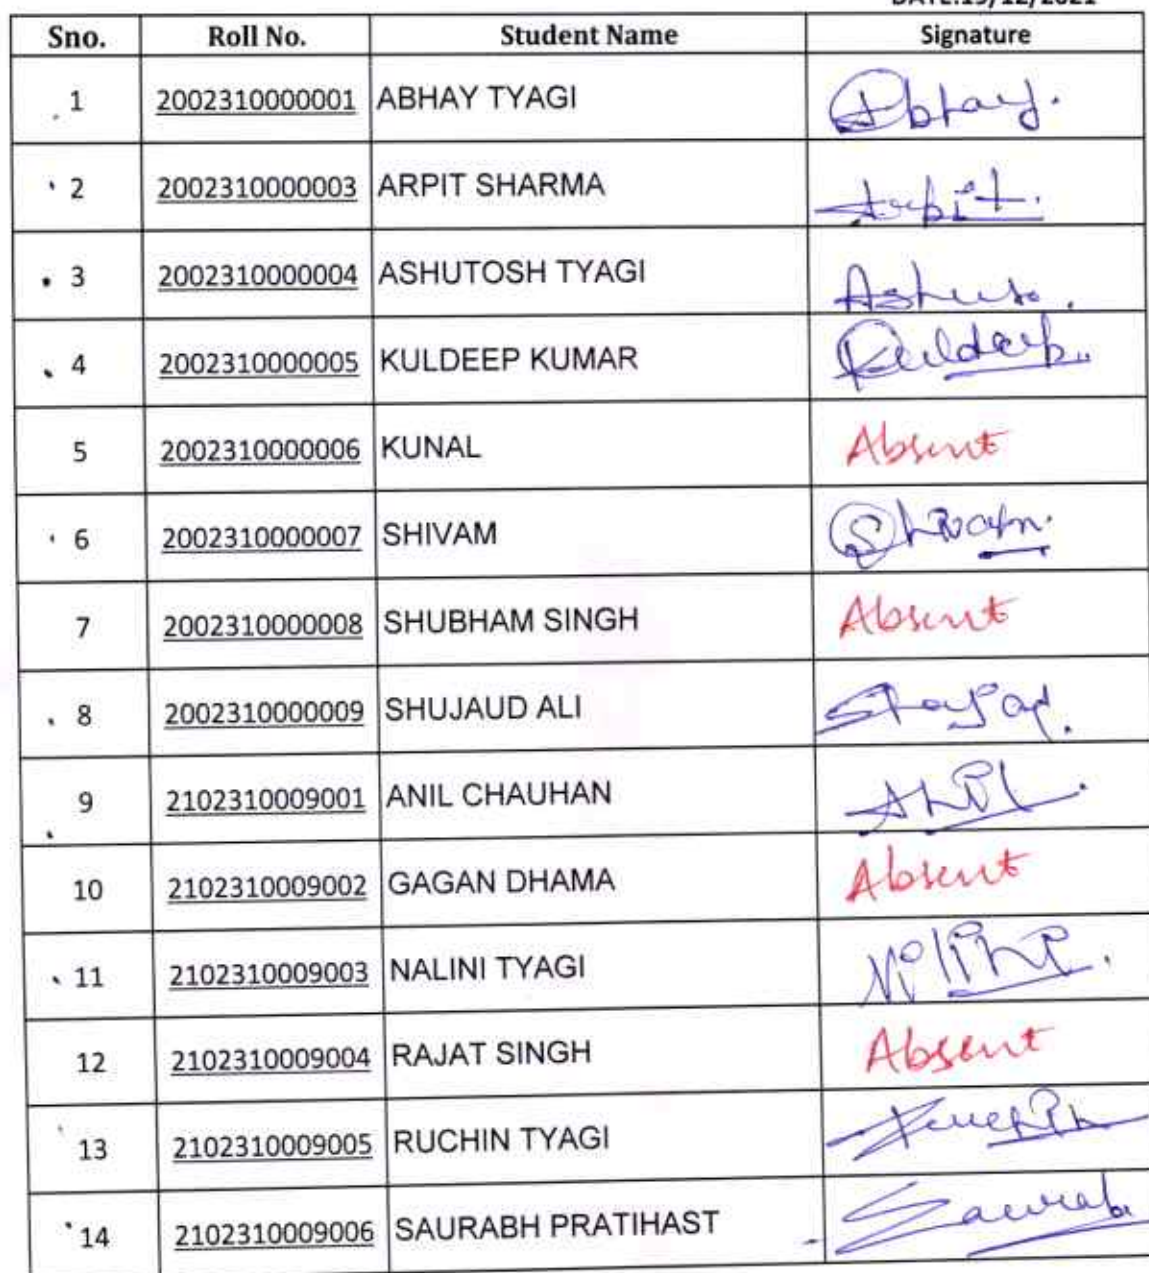 DATE:15/12/2021
Sno. Roll No. Student Name Signature
1 2002310000001 ABHAY TYAGI Abhay.
2 2002310000003 ARPIT SHARMA Arpit.
3 2002310000004 ASHUTOSH TYAGI Ashuto.
4 2002310000005 KULDEEP KUMAR Kuldeep
5 2002310000006 KUNAL Absent
6 2002310000007 SHIVAM Shivam
7 2002310000008 SHUBHAM SINGH Absent
8 2002310000009 SHUJAUD ALI
9 2102310009001 ANIL CHAUHAN Anil
10 2102310009002 GAGAN DHAMA Absent
11 2102310009003 NALINI TYAGI
12 2102310009004 RAJAT SINGH Absent
13 2102310009005 RUCHIN TYAGI
14 2102310009006 SAURABH PRATIHAST Saurabh